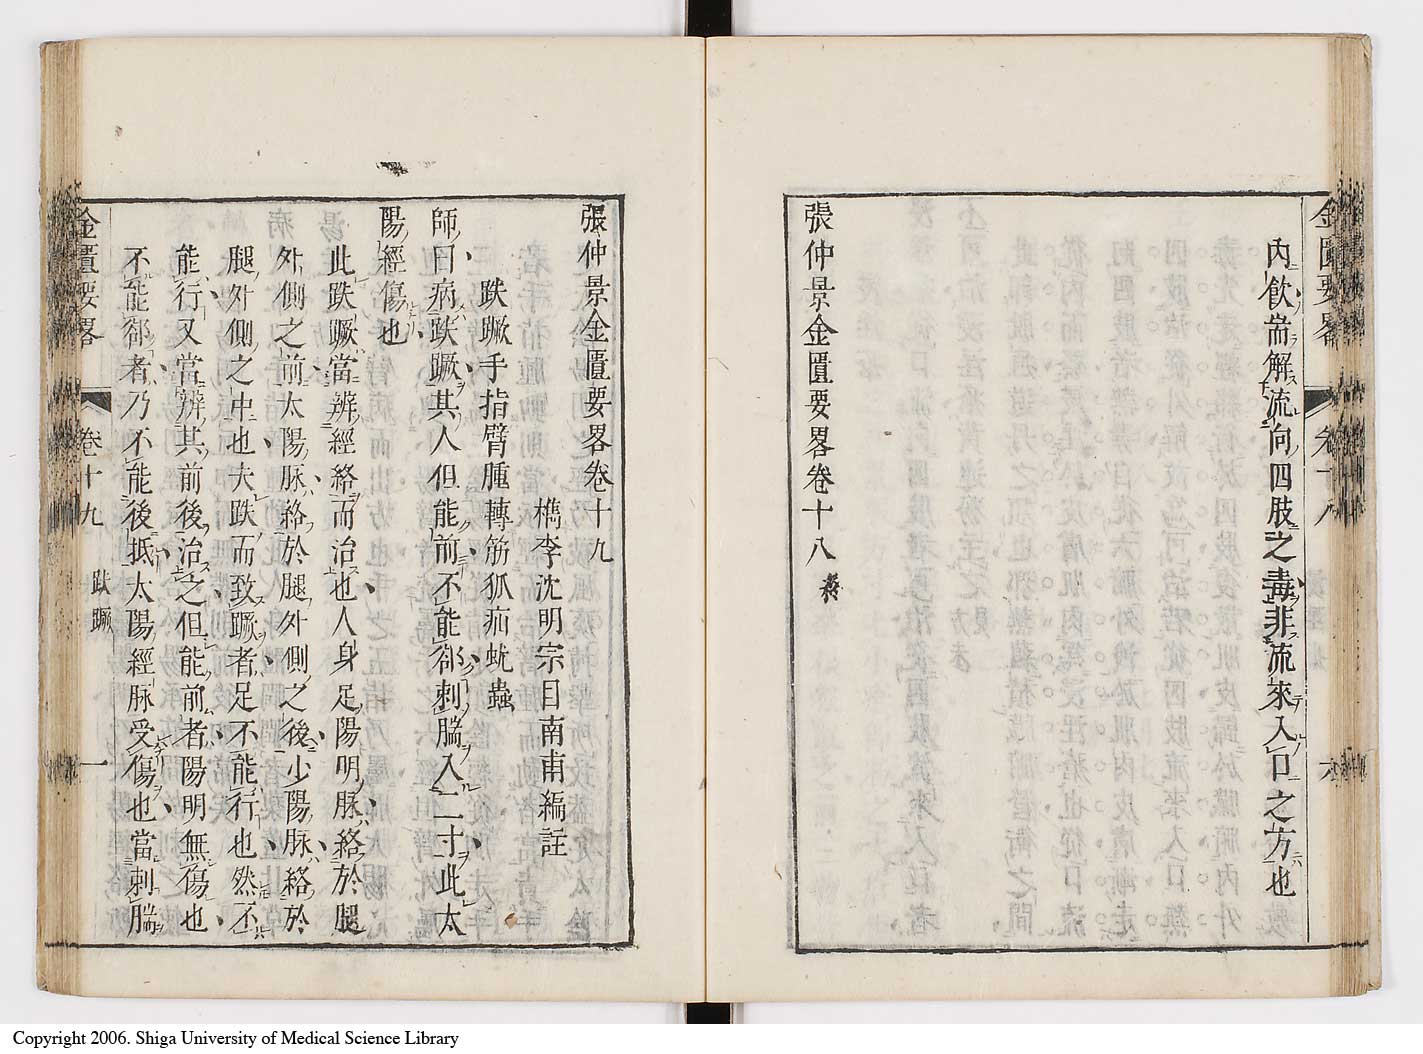 金匱要畧
卷十八
六
內飲耑解流向四肢之毒非流來入口之方也
張仲景金匱要畧卷十八終
張仲景金匱要畧卷十九
檇李沈明宗目南甫編註
趺蹶手指臂腫轉筋狐疝蚘蟲
師曰病趺蹶其人但能前不能郤刺腨入二寸此太
陽經傷也
此趺蹶當辨經絡而治也人身足陽明脉絡於腿
外側之前太陽脉絡於腿外側之後少陽脉絡於
腿外側之中也夫趺而致蹶者足不能行也然不
能行又當辨其前後治之但能前者陽明無傷也
不能郤者乃不能後抵太陽經脉受傷也當刺腨
金匱要畧
卷十九
趺蹶
一
Copyright 2006. Shiga University of Medical Science Library